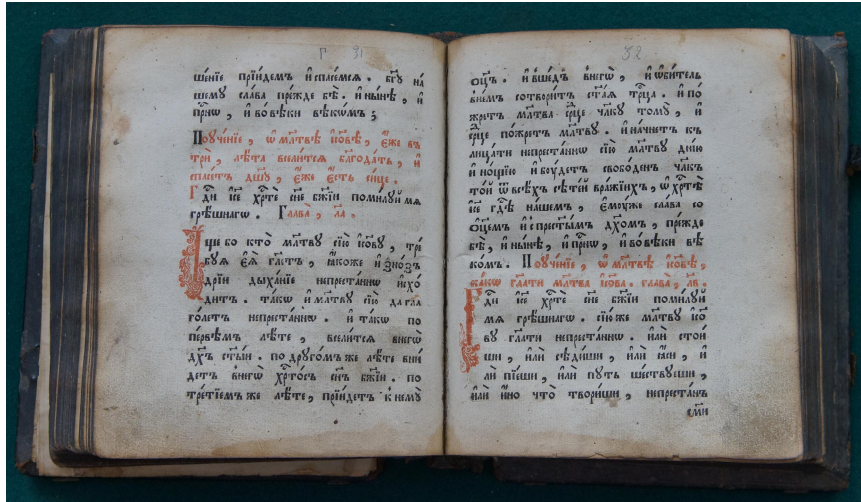 г 31
шенїе прїидемъ и҆ спасемсѧ . бг҃ꙋ на́
шемꙋ сла́ва пре́жде бѣ̀ . и҆ ны́нѣ , и҆
при́снѡ , и҆ во вѣ́ки вѣко́мъ ;
Поꙋче́нїе , ѡ҆ мл҃твѣ і҆с҃овѣ , є҆́же въ
трѝ , лѣ́та всели́тсѧ бл҃года́ть , и҆
спасе́тъ дш҃ꙋ , є҆́же є҆́сть си́це .
Гдⷭ҇и і҆с҃е хрⷭ҇тѐ сн҃е бж҃їи поми́лꙋй мѧ
грѣ́шнаго . Глава̀ , ла .
А҆́ще бо кто̀ мл҃твꙋ сїю̀ і҆с҃овꙋ , тре́
бꙋѧ є҆ѧ̀ гл҃етъ , ꙗ҆́коже и҆зно́здъ
дрїи дыха́нїе непреста́ннѡ и҆схо́
дитъ . та́кѡ и҆ мл҃твꙋ сїю̀ да гла
го́летъ непреста́ннѡ . и҆ та́кѡ по
пе́рвѣмъ лѣ́те , всели́тсѧ внего̀
дх҃ъ ст҃ы́и . по дрꙋго́мъ же лѣ́те вни́
детъ внего̀ хрⷭ҇то́съ сн҃ъ бж҃їи . по
тре́тїемъ же лѣ́те , прїи́детъ к немꙋ̀
32
ѻ҆ц҃ъ . и҆ вше́дъ внего̀ , и҆ ѡ҆би́тель
вне́мъ сотвори́тъ ст҃а́ѧ трⷪ҇ца . и҆ по
жре́тъ мл҃тва срⷣце чл҃кꙋ томꙋ̀ , и҆
срⷣце пожре́тъ мл҃твꙋ . и҆ начне́тъ кл
ица́ти непреста́ннѡ сїю̀ мл҃твꙋ дн҃їю
и҆ но́щїю и҆ бꙋ́детъ свобо́денъ чл҃къ
то́й ѿ всѣ́хъ сѣте́й вра́жїихъ , ѡ҆ хрⷭ҇тѣ̀
і҆с҃е гдⷭ҇ѣ на́шемъ , є҆мꙋ́же сла́ва со
ѻ҆ц҃е́мъ и҆ с прест҃ы́мъ дх҃омъ , пре́жде
бѣ̀ , и҆ ны́нѣ , и҆ при́снѡ , и҆ во вѣ́ки вѣ
ко́мъ . Поꙋче́нїе , ѡ҆ мл҃твѣ і҆с҃овѣ ,
ка́кѡ гл҃ати мл҃тва і҆с҃ова . глава̀ , лв .
Гдⷭ҇и і҆с҃е хрⷭ҇тѐ сн҃е бж҃їи поми́лꙋй
мѧ грѣ́шнаго . сїю́ же мл҃твꙋ і҆с҃о
вꙋ гл҃ати непреста́ннѡ . и҆лѝ стои́
ши , и҆лѝ сѣди́ши , и҆лѝ ꙗ҆́си , и҆
лѝ пїе́ши , и҆лѝ пꙋ́ть ше́ствꙋеши ,
и҆лѝ и҆́но что̀ твори́ши , непреста́нъ